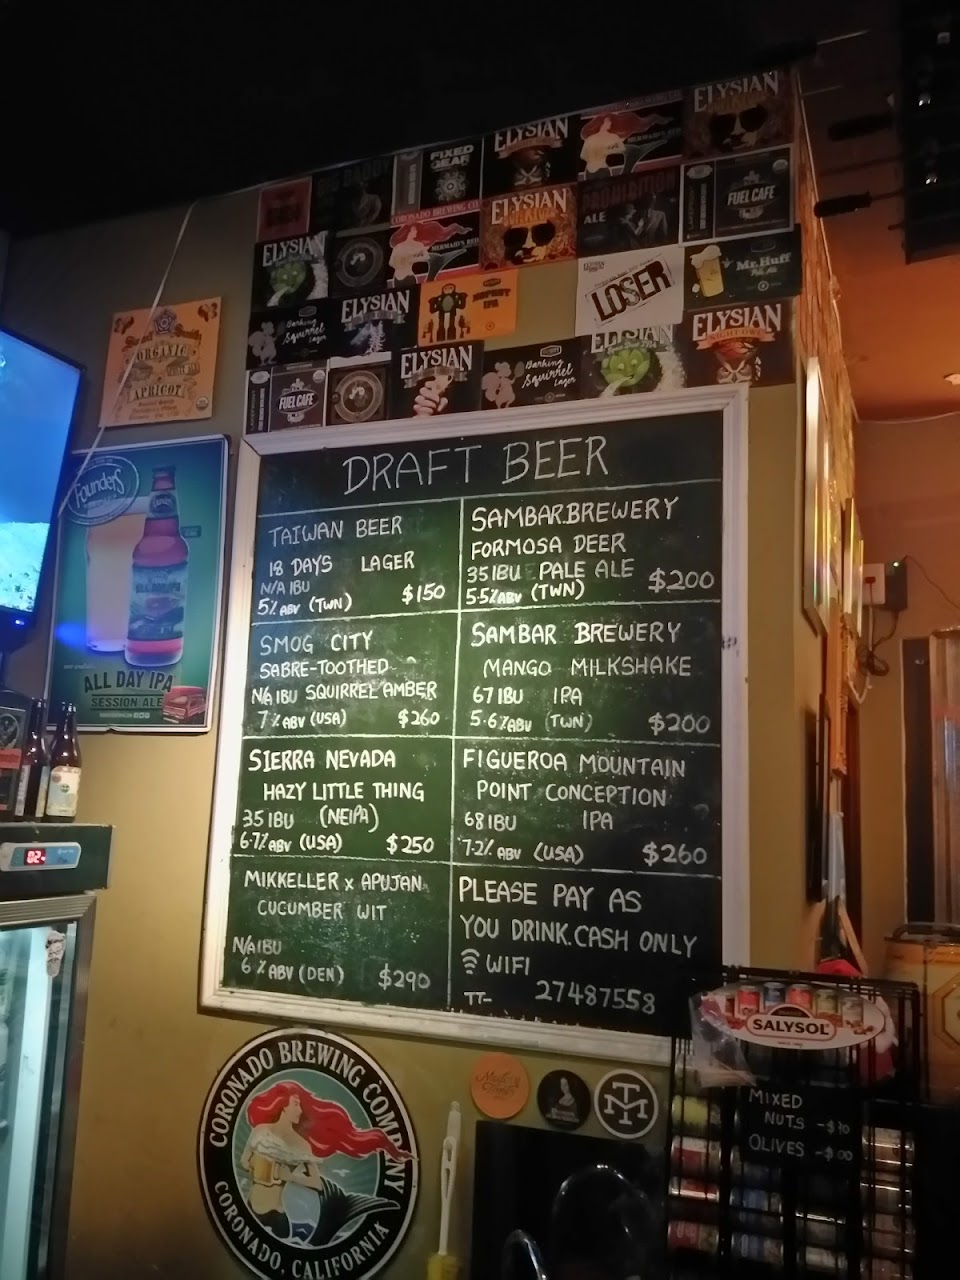 ELYSIAN
ELYSIAN
FIXED
GEAR
BIG DADDY
MERMAID'S RED
PROHIBITION
ALE
FUEL CAFE
CORONADO BREWING CO
MERMAID'S RED
ELYSIAN
ELYSIAN
LOSER
Mr. Huff
Pale Ale
Barking
Squirrel
Lager
ELYSIAN
IPA
ELYSIAN
NIGHT OWL
ELYSIAN
FUEL CAFE
ELYSIAN
Barking
Squirrel
Lager
ORGANIC
APRICOT
Founders
ALL DAY IPA
SESSION ALE
DRAFT BEER
TAIWAN BEER
18 DAYS LAGER
N/A IBU
5% ABV (TWN) $150
SAMBAR.BREWERY
FORMOSA DEER
35 IBU PALE ALE
5.5% ABV (TWN) $200
SMOG CITY
SABRE-TOOTHED
N/A IBU SQUIRREL AMBER
7% ABV (USA) $260
SAMBAR BREWERY
MANGO MILKSHAKE
67 IBU IPA
5.6% ABV (TWN) $200
SIERRA NEVADA
HAZY LITTLE THING
35 IBU (NEIPA)
6.7% ABV (USA) $250
FIGUEROA MOUNTAIN
POINT CONCEPTION
68 IBU IPA
7.2% ABV (USA) $260
MIKKELLER x APUJAN
CUCUMBER WIT
N/A IBU
6% ABV (DEN) $290
PLEASE PAY AS
YOU DRINK.CASH ONLY
WIFI
TT- 27487558
02
SALYSOL
MIXED
NUTS
OLIVES
CORONADO BREWING COMPANY
CORONADO, CALIFORNIA
TM